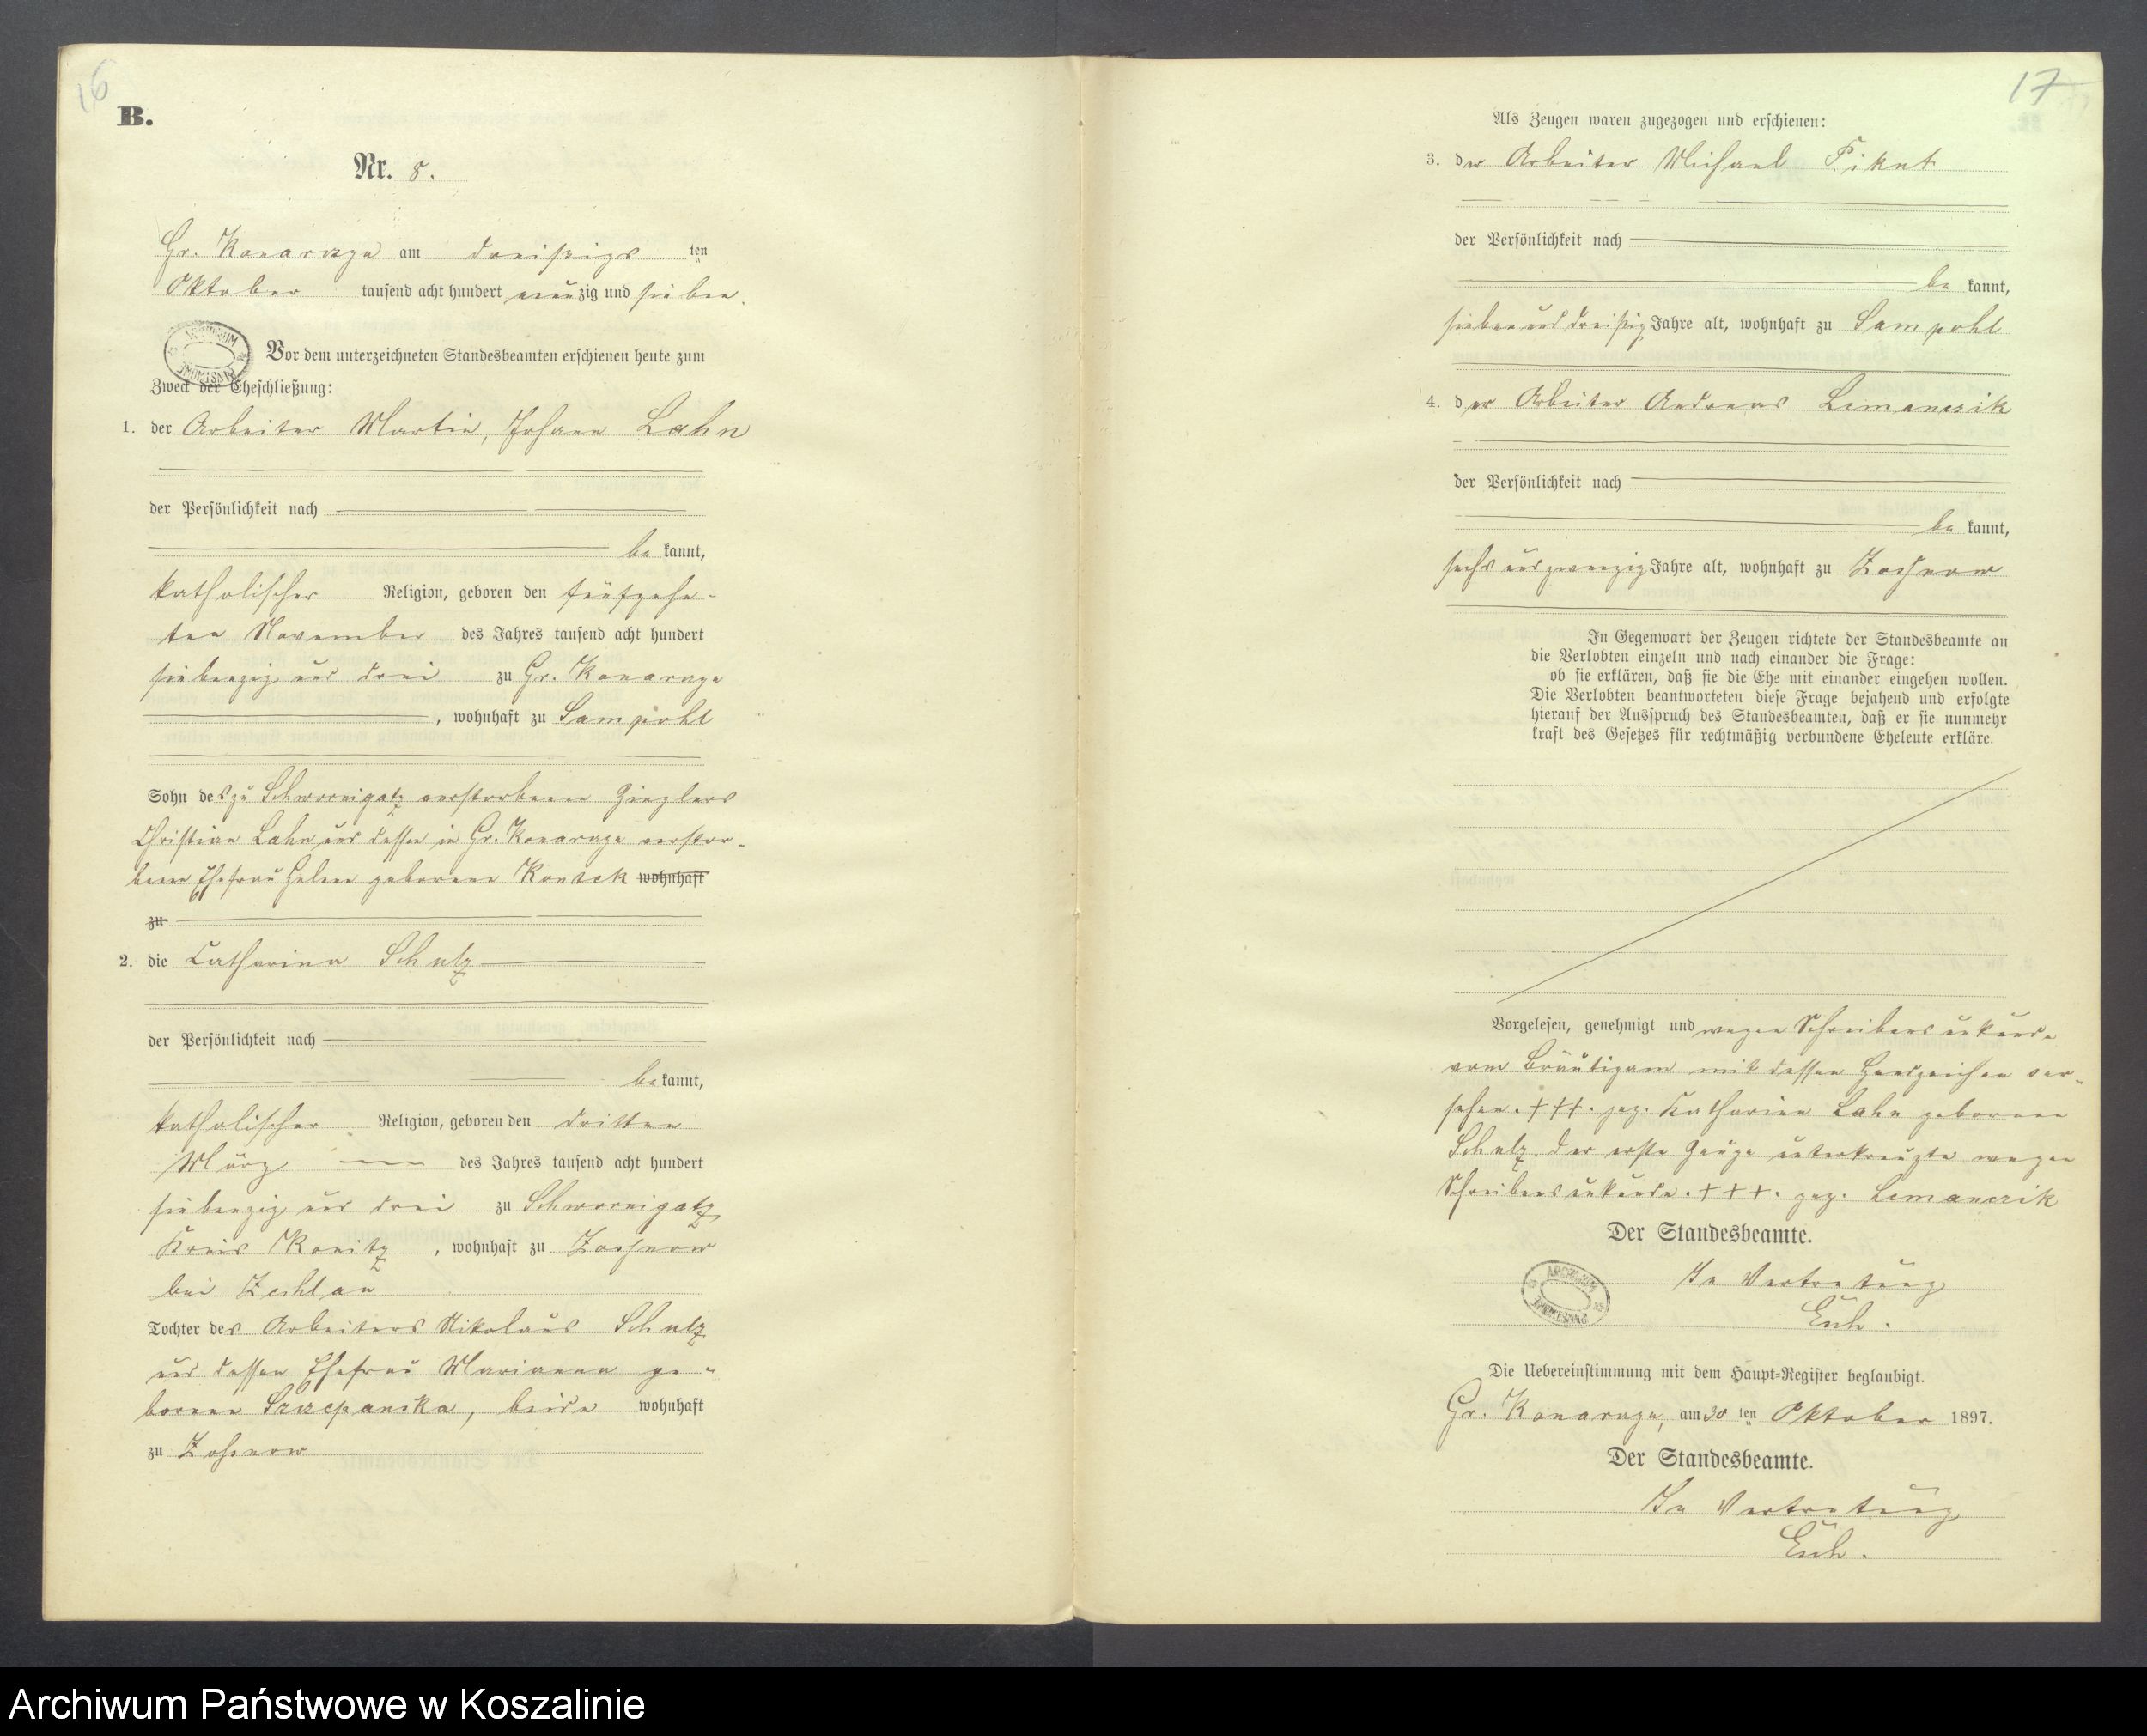 16
B.
Nr. 8.
Gr. Konarczyn am dreißigs ten
Oktober tausend acht hundert neunzig und sieben.
ARCHIWUM
Vor dem unterzeichneten Standesbeamten erschienen heute zum
Zweck der Eheschließung:
1. der Arbeiter Martin, Johann Lahn
der Persönlichkeit nach
be kannt,
katholischer Religion, geboren den fünfzehn-
ten November des Jahres tausend acht hundert
siebenzig und drei zu Gr. Konarzyn
, wohnhaft zu Sampohl
Sohn des zu Schwornigatz verstorbenen Zieglers
Christian Lahn und dessen in Gr. Konarzyn verstor-
benen Ehefrau Helene geborenen wohnhaft
zu
2. die Catharina Schulz
der Persönlichkeit nach
be kannt,
katholischer Religion, geboren den dritten
März des Jahres tausend acht hundert
siebenzig und drei zu Schwornigatz
Kreis Konitz, wohnhaft zu
bei Zechlau
Tochter des Arbeiters Nikolaus Schulz
und dessen Ehefrau Marianna ge-
borene Szczepanska, beide wohnhaft
zu
17
Als Zeugen waren zugezogen und erschienen:
3. der Arbeiter Michael
der Persönlichkeit nach
be kannt,
siebenunddreißig Jahre alt, wohnhaft zu Sampohl
4. der Arbeiter Andreas Lemanczik
der Persönlichkeit nach
be kannt,
sechsundzwanzig Jahre alt, wohnhaft zu
In Gegenwart der Zeugen richtete der Standesbeamte an
die Verlobten einzeln und nach einander die Frage:
ob sie erklären, daß sie die Ehe mit einander eingehen wollen.
Die Verlobten beantworteten diese Frage bejahend und erfolgte
hierauf der Ausspruch des Standesbeamten, daß er sie nunmehr
kraft des Gesetzes für rechtmäßig verbundene Eheleute erkläre.
Vorgelesen, genehmigt und wegen Schreibensunkunde
vom Bräutigam mit dessen Handzeichen ver-
sehen. +++. gez. Katharina Lahn geborene
Schulz. Der erste Zeuge unterkreuzte wegen
Schreibensunkunde. +++. gez. Lemanczik
Der Standesbeamte.
ARCHIWUM
In Vertretung
Die Uebereinstimmung mit dem Haupt-Register beglaubigt.
Gr. Konarzyn, am 30 ten Oktober 1897.
Der Standesbeamte.
In Vertretung
Archiwum Państwowe w Koszalinie